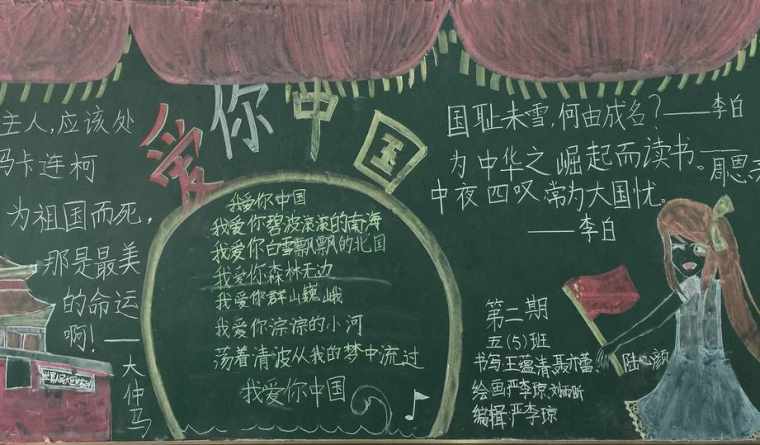 爱你中国
主人,应该处
马卡连柯
为祖国而死,
那是最美
的命运
啊!——
大仲马
我爱你中国
我爱你碧波滚滚的南海
我爱你白雪飘飘的北国
我爱你森林无边
我爱你群山巍峨
我爱你淙淙的小河
荡着清波从我的梦中流过
我爱你中国
国耻未雪,何由成名?——李白
为中华之崛起而读书。
中夜四叹,常为大国忧。
——李白
第二期
五(5)班
书写王蕴清
绘画严李琼
编辑严李琼